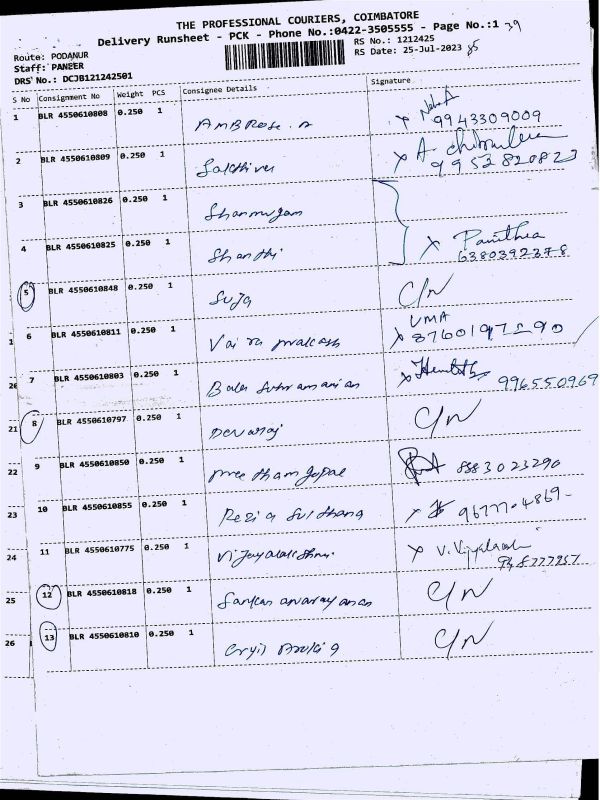 THE PROFESSIONAL COURIERS, COIMBATORE
Delivery Runsheet - PCK - Phone No.:0422-3505555 - Page No.:1 39
Route: PODANUR
RS No.: 1212425
Staff: PANEER
RS Date: 25-Jul-2023 85
DRS No.: DCJB121242501
S No Consignment No Weight PCS Consignee Details Signature
1 BLR 4550610808 0.250 1 AMBRose. A x 9943309009
2 BLR 4550610809 0.250 1 Sakthivel x A. 9952820823
3 BLR 4550610826 0.250 1 Shanmugam
4 BLR 4550610825 0.250 1 Shanthi x Pavithra 6380392378
5 BLR 4550610848 0.250 1 Suja C/N
1 6 BLR 4550610811 0.250 1 Vai ra prakash UMA x 8760197590
20 7 BLR 4550610803 0.250 1 Bala Subramanian x 996550969
21 8 BLR 4550610797 0.250 1 Devaraj C/N
22 9 BLR 4550610850 0.250 1 8883023290
23 10 BLR 4550610855 0.250 1 Rezia Sulthana x 9677704869
24 11 BLR 4550610775 0.250 1 Vijayalakshmi x V. Vijyalaxmi
25 12 BLR 4550610818 0.250 1 Sankaranarayanan C/N
26 13 BLR 4550610810 0.250 1 C/N